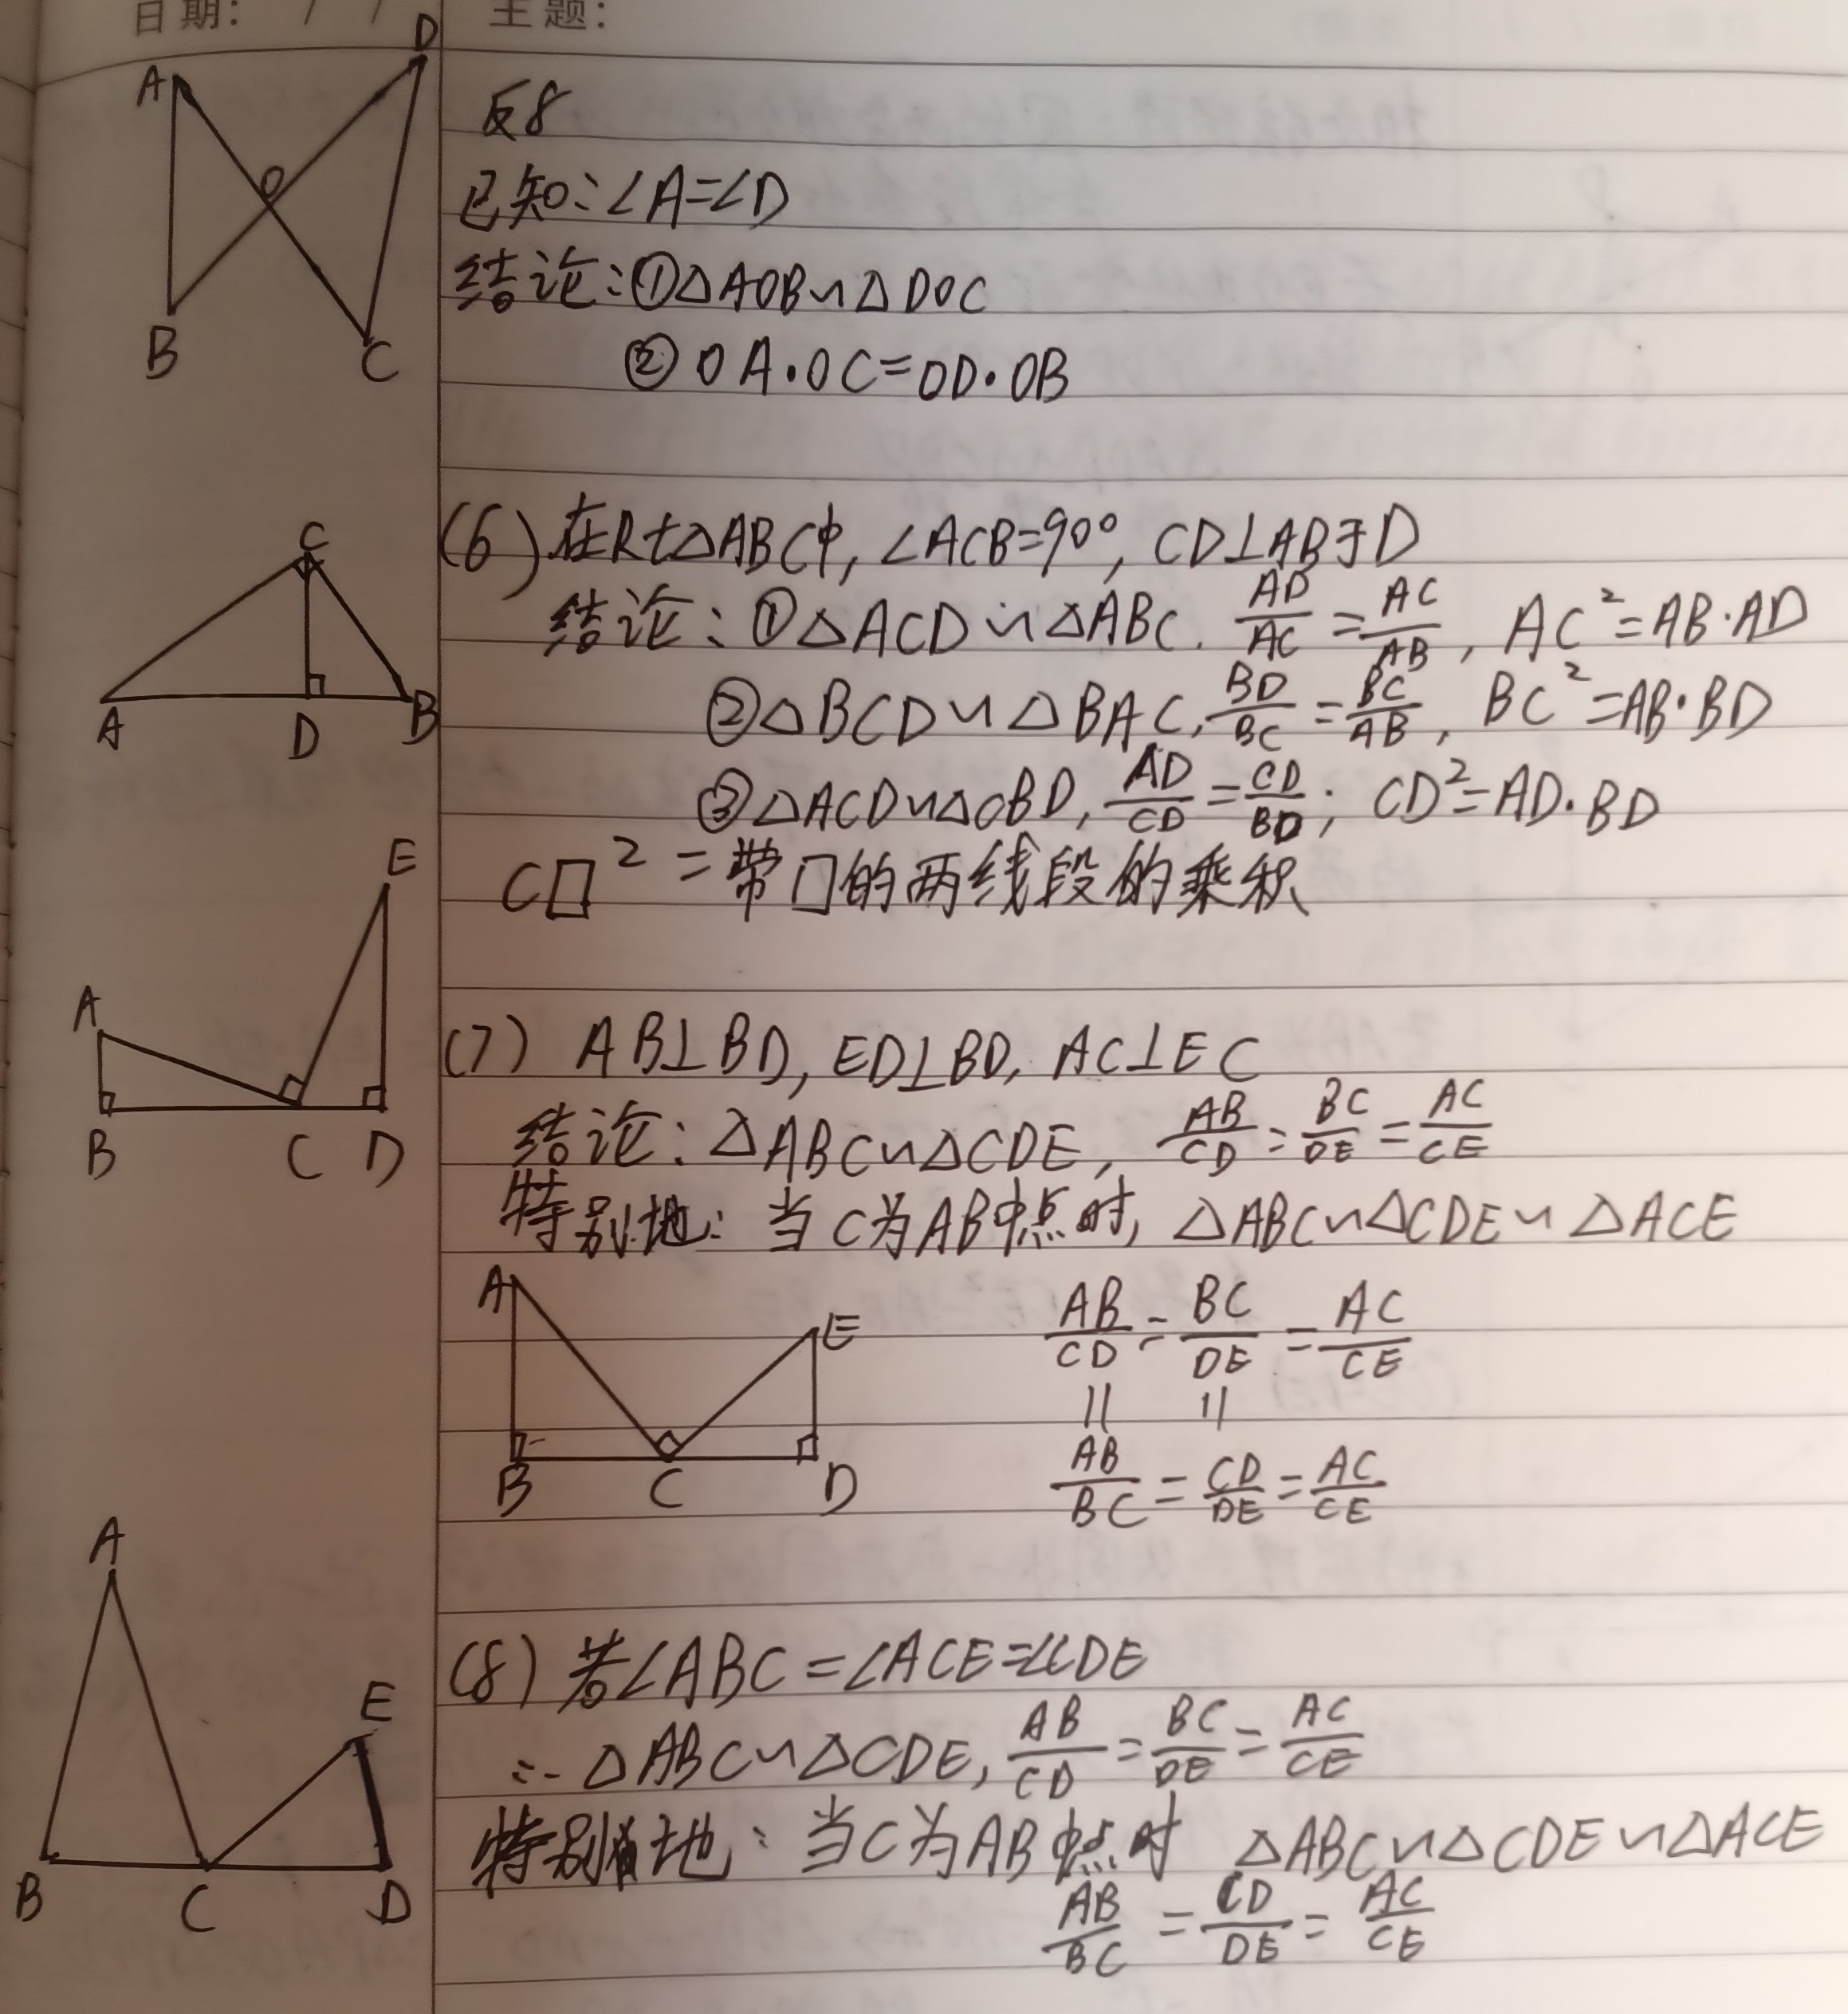 日期: / / 主题:
A D
O
B C
反8
已知:∠A=∠D
结论:①△AOB∽△DOC
②OA·OC=OD·OB
C
A D B
(6)在Rt△ABC中,∠ACB=90°,CD⊥AB于D
结论:①△ACD∽△ABC. AD/AC=AC/AB, AC²=AB·AD
②△BCD∽△BAC, BD/BC=BC/AB, BC²=AB·BD
③△ACD∽△CBD, AD/CD=CD/BD; CD²=AD·BD
C□²=带□的两线段的乘积
E
A
B C D
(7) AB⊥BD, ED⊥BD, AC⊥EC
结论:△ABC∽△CDE, AB/CD=BC/DE=AC/CE
特别地:当C为AB中点时,△ABC∽△CDE∽△ACE
A E
B C D
AB/CD=BC/DE=AC/CE
|| ||
AB/BC=CD/DE=AC/CE
A
E
B C D
(8)若∠ABC=∠ACE=∠CDE
∴△ABC∽△CDE, AB/CD=BC/DE=AC/CE
特别地:当C为AB中点时 △ABC∽△CDE∽△ACE
AB/BC=CD/DE=AC/CE